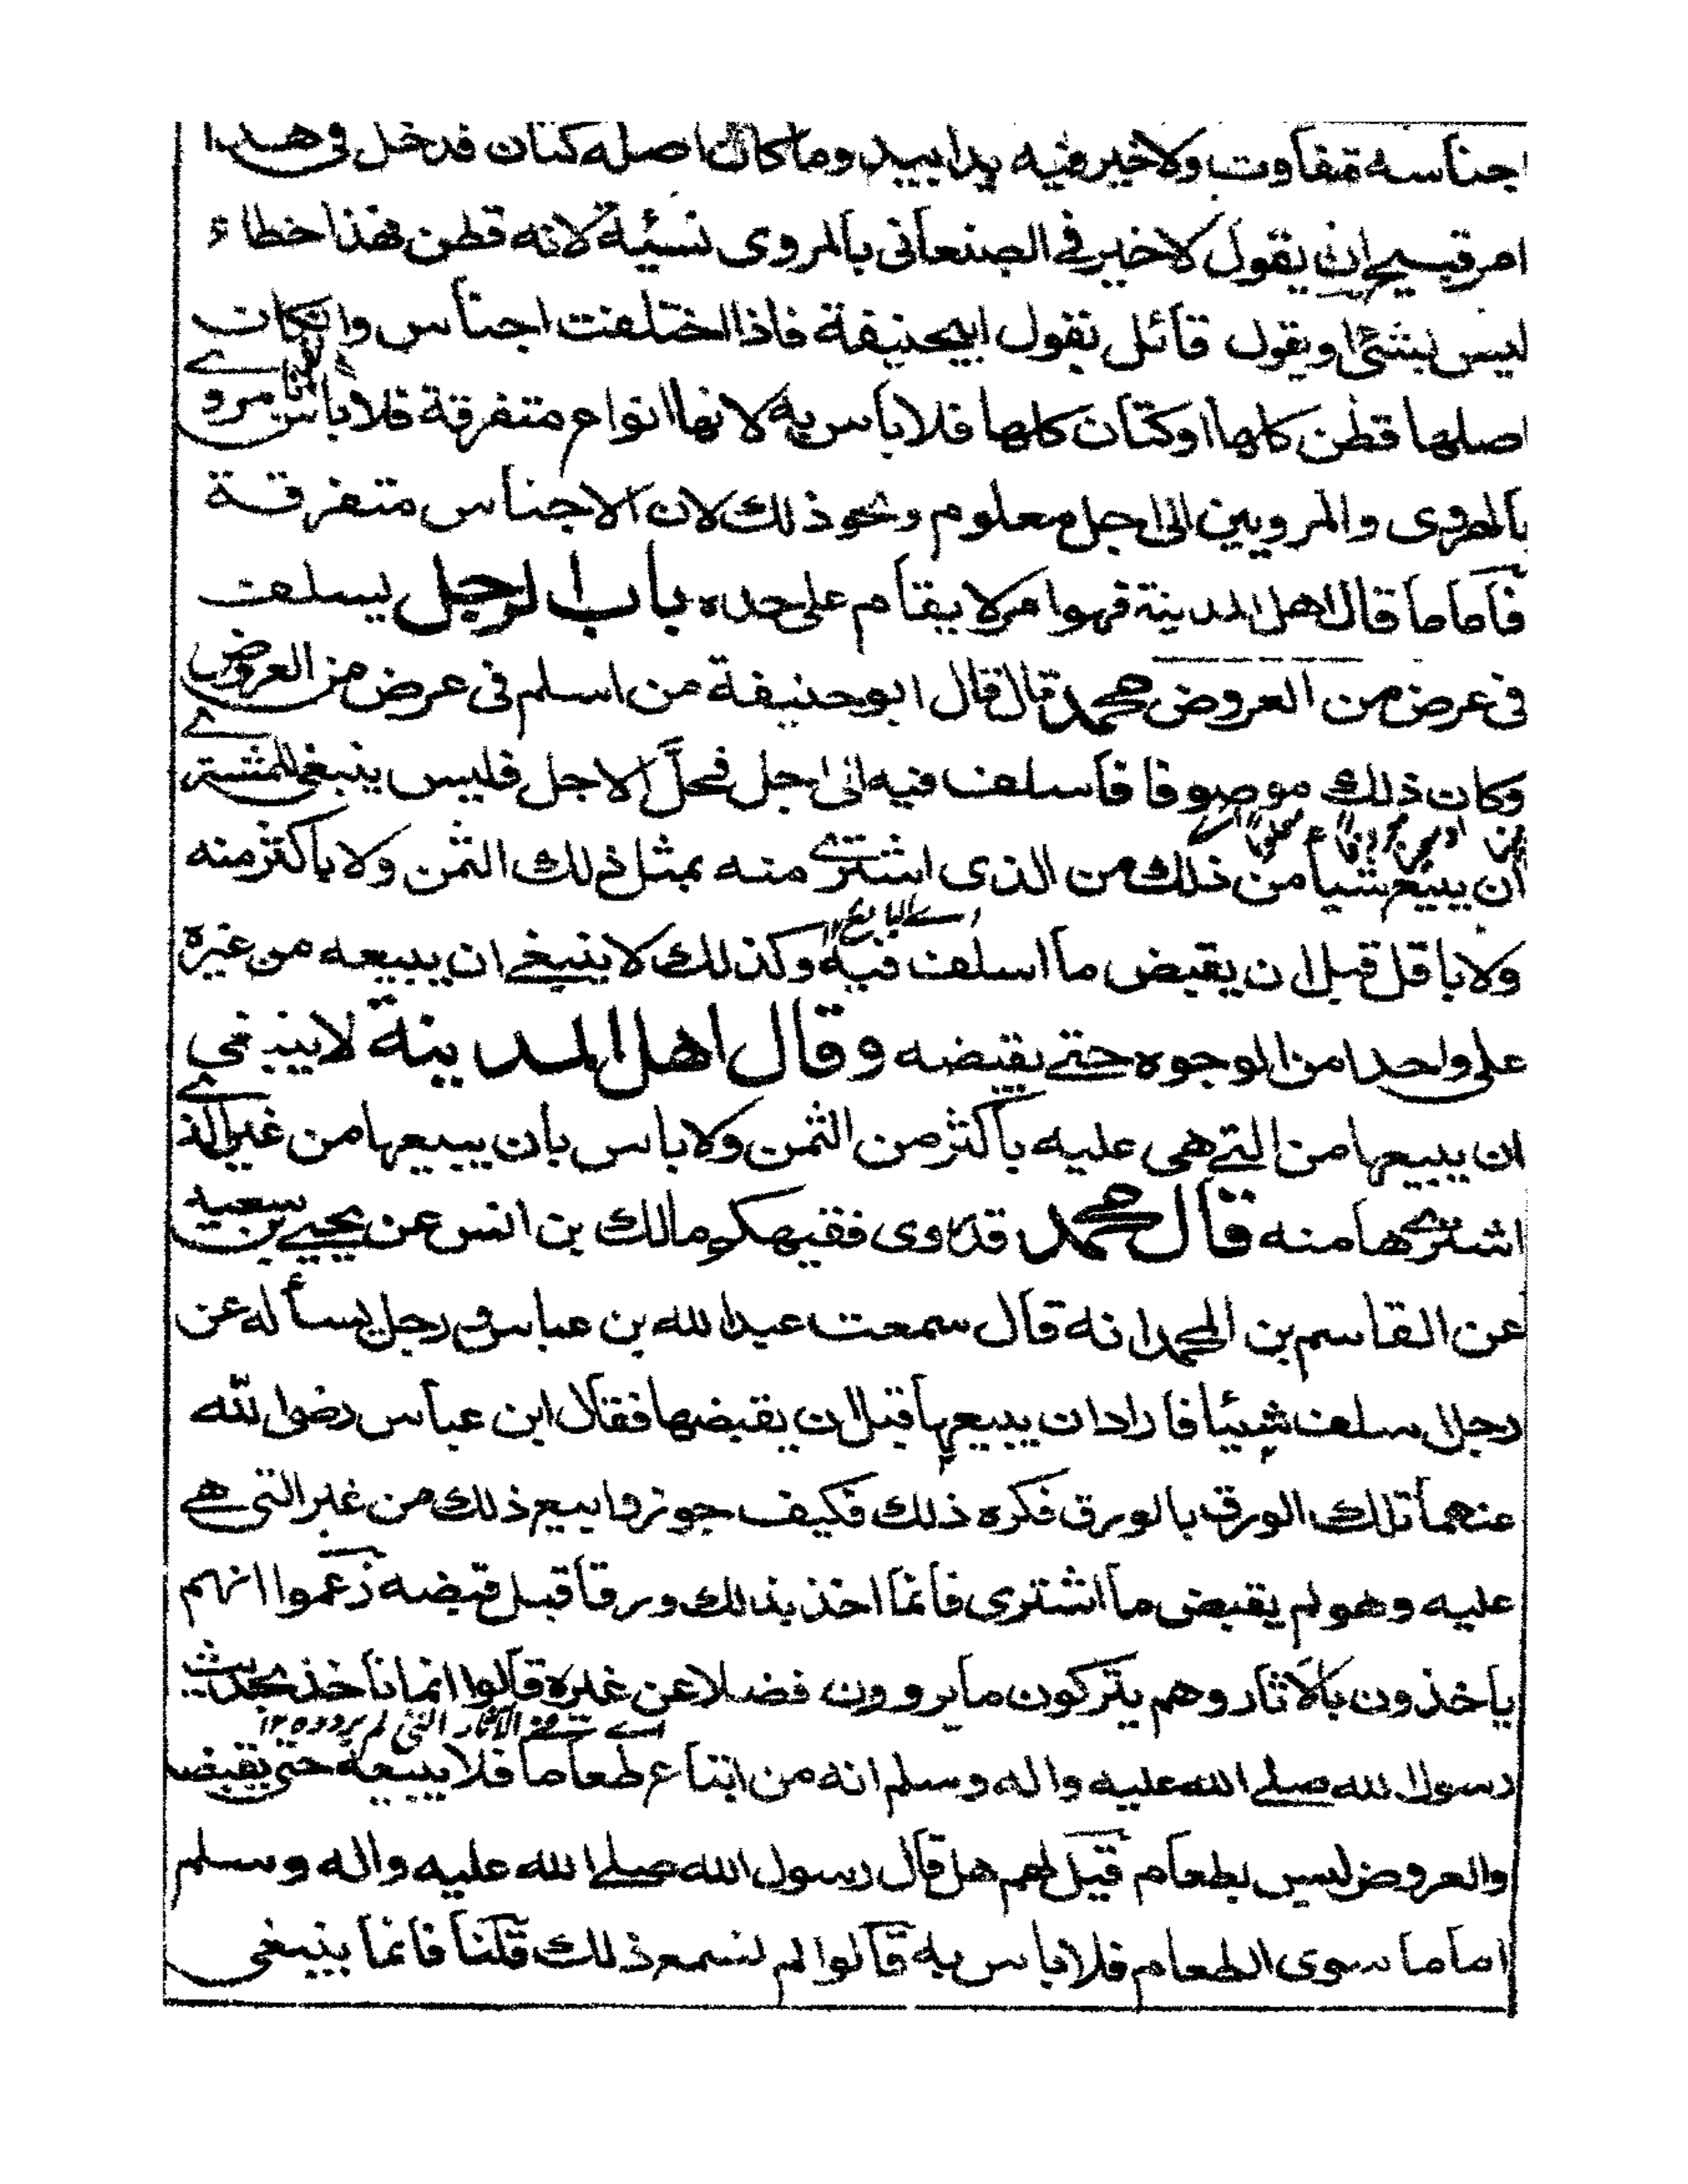 اجناسه متفاوت ولا خير فيه يدا بيد وما كان اصله كتان فدخل في هذا
امر قبيح ان يقول لا خير في الصنعاني بالمروى نسيئة لانه قطن فهذا خطاء
ليس بشئ او يقول قائل نقول ابيحنيفة فاذا اختلفت اجناس وانكانت
اصلها قطن كلها او كتان كلها فلا باس به لانها انواع متفرقة فلا باس مروے
بالهروى والمرويين الى اجل معلوم ونحو ذلك لان الاجناس متفرقة
فاما ما قال اهل المدينة فهو امر لا يقام على حده باب الرجل يسلف
في عرض من العروض محمد قال قال ابو حنيفة من اسلم في عرض من العروض
وكان ذلك موصوفا فاسلف فيه الى اجل فحل الاجل فليس ينبغى للمشترے
ان يبيع شيا من ذلك من الذى اشترے منه بمثل ذلك الثمن ولا باكثر منه
اے البائع
ولا باقل قبل ان يقبض ما اسلف فيه وكذلك لا ينبغے ان يبيعه من غيره
على واحد من الوجوه حتے يقبضه وقال اهل المدينة لا ينبغي
ان يبيعها من التے هى عليه باكثر من الثمن ولا باس بان يبيعها من غير الذے
اشترےها منه قال محمد قد روى فقيهكم مالك بن انس عن يحيے بن سعيد
عن القاسم بن المحمد انه قال سمعت عبد الله بن عباس ورجل يساله عن
رجل سلف شيئا فاراد ان يبيعها قبل ان يقبضها فقال ابن عباس رضى الله
عنهما تلك الورق بالورق فكره ذلك فكيف جوزوا بيع ذلك من غير التى هے
عليه وهو لم يقبض ما اشترى فانما اخذ بذلك ورقا قبل قبضه زعموا انهم
ياخذون بالاثار وهم يتركون ما يروون فضلا عن غيره قالوا انما ناخذ بحديث
اے من الاثار التى لم يرووه ١٢
رسول الله صلے الله عليه واله وسلم انه من ابتاع طعاما فلا يبيعه حتى يقبضه
والعروض ليس بطعام قيل لهم هل قال رسول الله صلے الله عليه واله وسلم
اما ما سوى الطعام فلا باس به قالوا لم نسمع ذلك قلنا فانما ينبغى